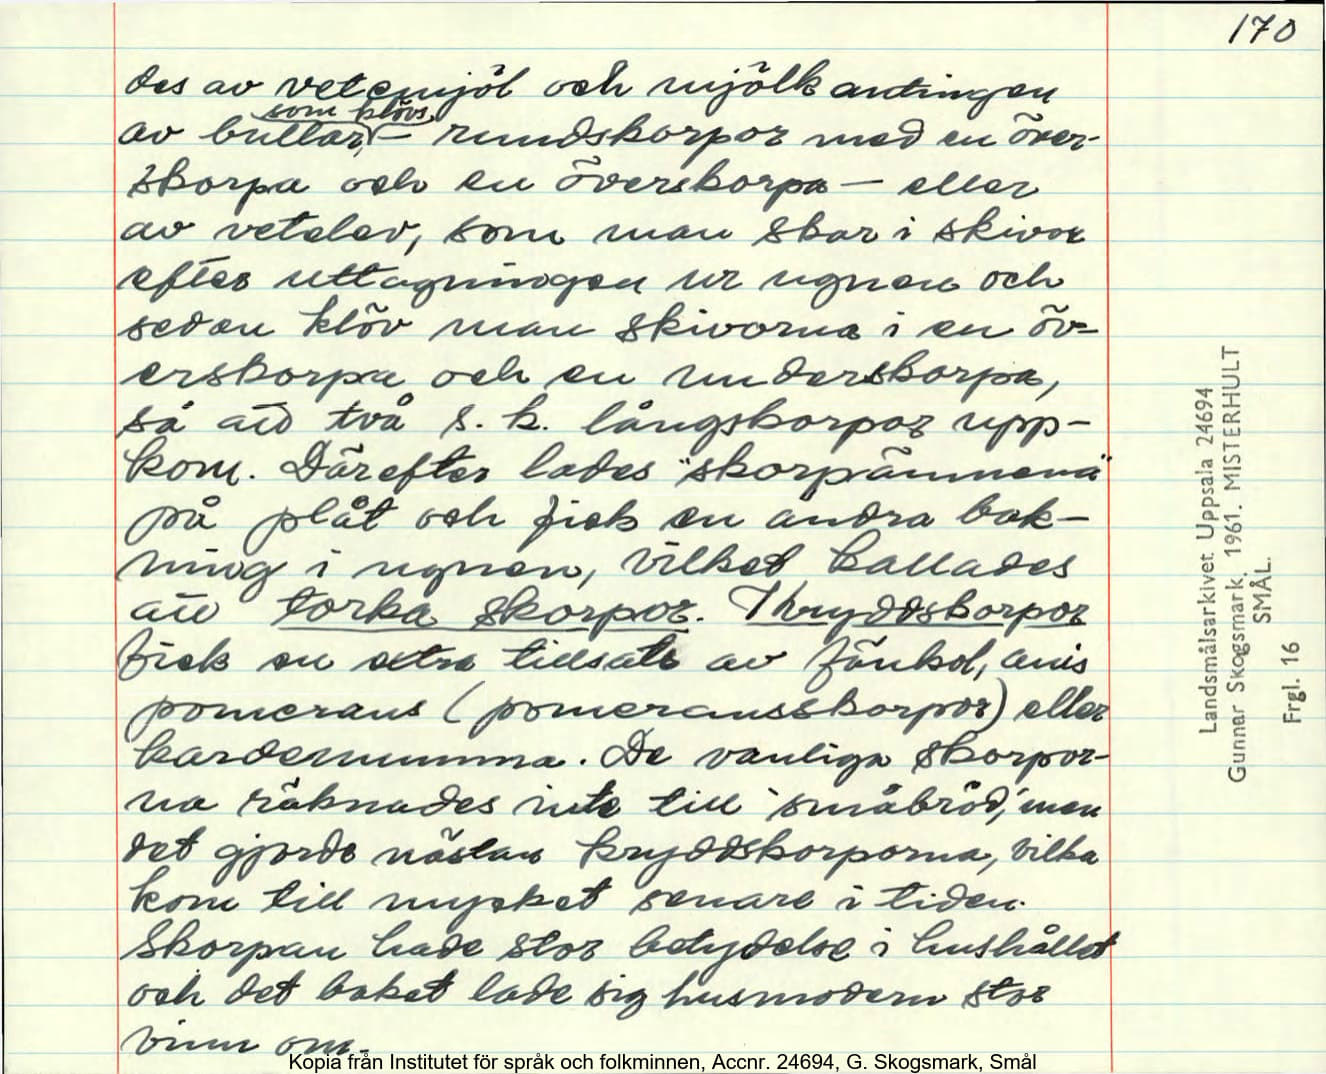 170
des av vetemjöl och mjölk antingen
som klövs
av bullar, — rundskorpor med en över-
skorpa och en överskorpa — eller
av vetelev, som man skar i skivor
efter uttagningen ur ugnen och
sedan klöv man skivorna i en öv-
erskorpa och en underskorpa,
så att två s. k. långskorpor upp-
kom. Därefter lades "skorpämnena"
på plåt och fick en andra bak-
ning i ugnen, vilket kallades
att torka skorpor. Kryddskorpor
fick en extra tillsats av fänkol, anis
pomerans (pomeransskorpor) eller
kardemumma. De vanliga skorpor-
na räknades inte till "småbröd", men
det gjorde nästan kryddskorporna, vilka
kom till mycket senare i tiden.
Skorpan hade stor betydelse i hushållet
och det baket lade sig husmodern stor
vinn om.
Landsmålsarkivet Uppsala 24694
Gunnar Skogsmark. 1961. MISTERHULT
SMÅL.
Frgl. 16
Kopia från Institutet för språk och folkminnen, Accnr. 24694, G. Skogsmark, Smål